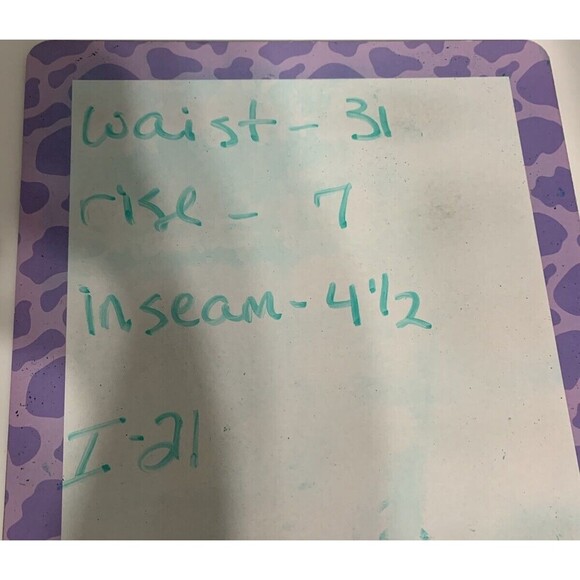 waist - 31
rise - 7
inseam - 4 1/2
I - 21